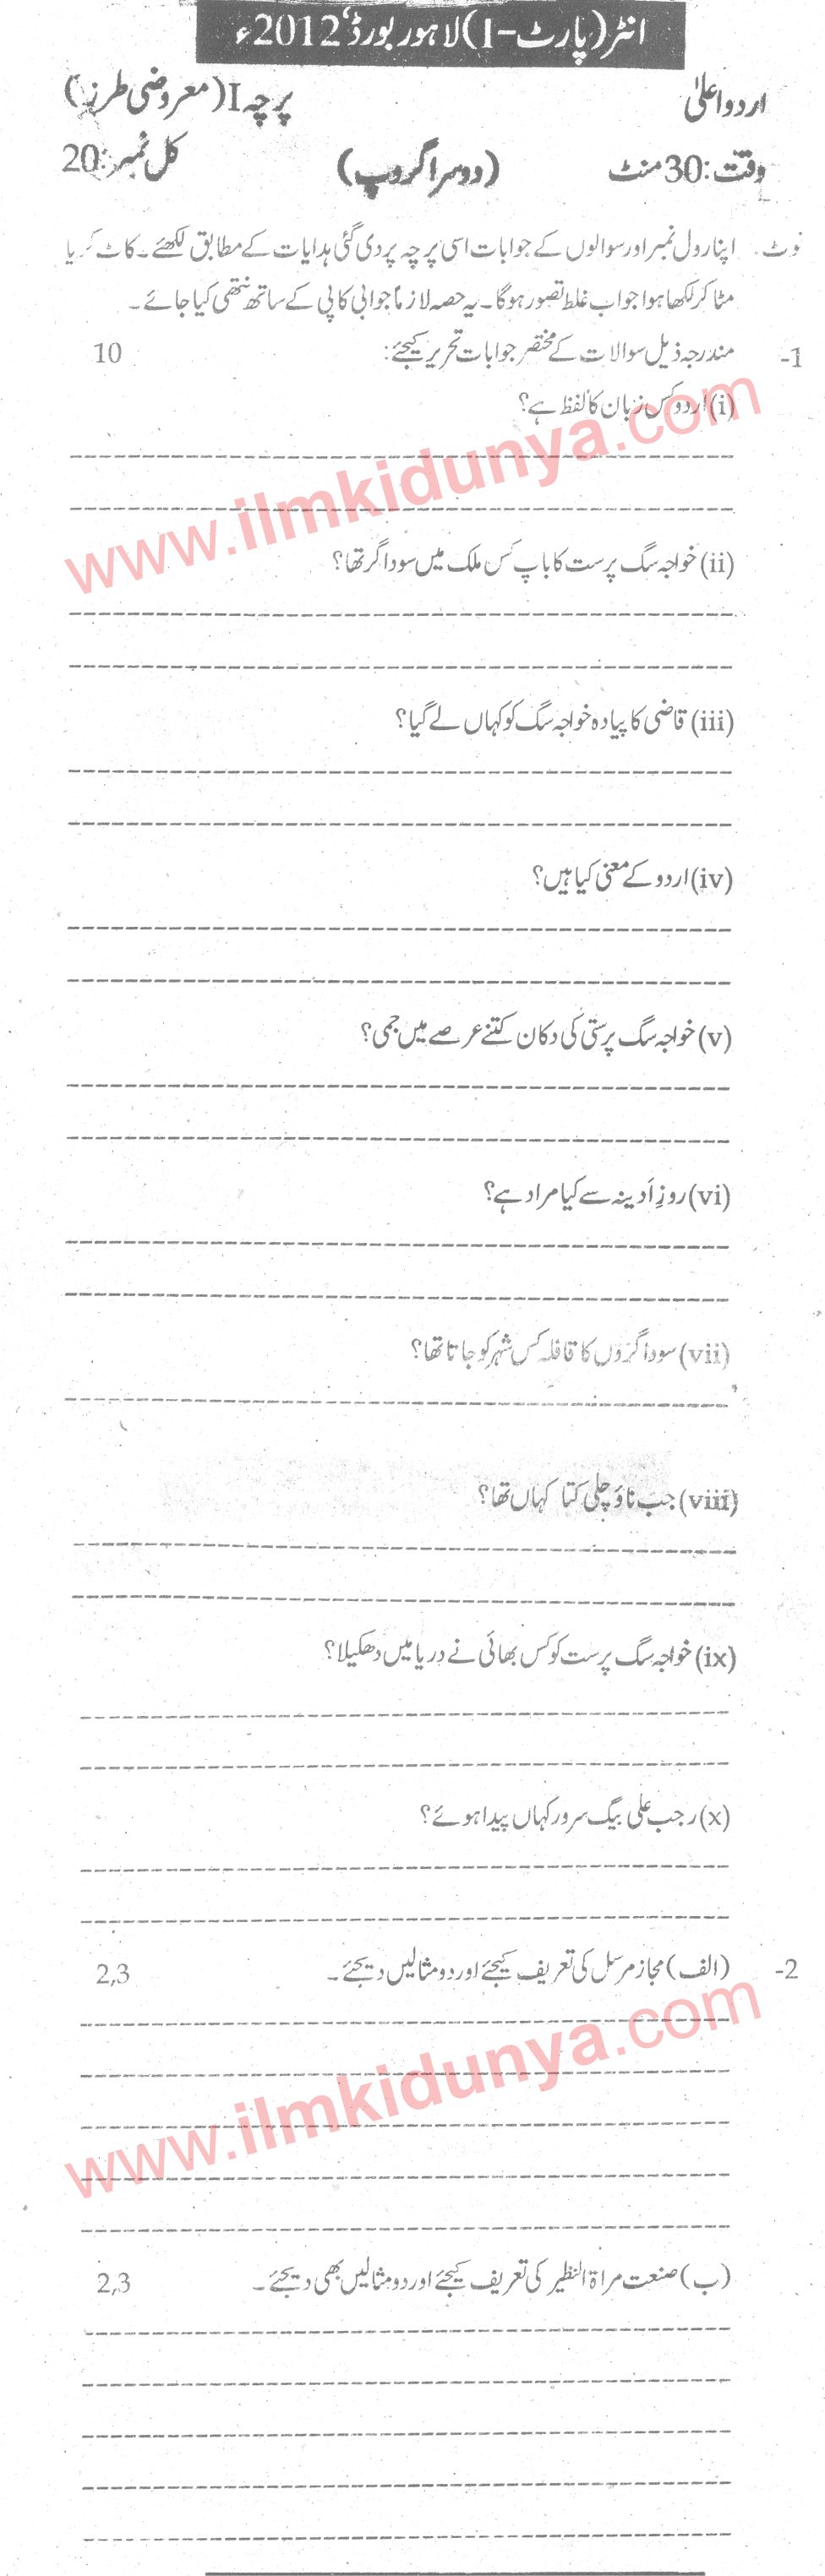 انٹر (پارٹ-I) لاہور بورڈ، 2012ء
اردو اعلیٰ پرچہ I (معروضی طرز)
وقت: 30 منٹ (دوسرا گروپ) کل نمبر: 20
نوٹ۔ اپنا رول نمبر اور سوالوں کے جوابات اسی پرچہ پر دی گئی ہدایات کے مطابق لکھئے۔ کاٹ کر یا
مٹا کر لکھا ہوا جواب غلط تصور ہوگا۔ یہ حصہ لازماً جوابی کاپی کے ساتھ نتھی کیا جائے۔
1- مندرجہ ذیل سوالات کے مختصر جوابات تحریر کیجئے: 10
(i) اردو کس زبان کا لفظ ہے؟
www.ilmkidunya.com
(ii) خواجہ سگ پرست کا باپ کس ملک میں سوداگر تھا؟
(iii) قاضی کا پیادہ خواجہ سگ کو کہاں لے گیا؟
(iv) اردو کے معنی کیا ہیں؟
(v) خواجہ سگ پرستی کی دکان کتنے عرصے میں جمی؟
(vi) روزِ اَدینہ سے کیا مراد ہے؟
(vii) سوداگروں کا قافلہ کس شہر کو جاتا تھا؟
(viii) جب ناؤ چلی کتا کہاں تھا؟
(ix) خواجہ سگ پرست کو کس بھائی نے دریا میں دھکیلا؟
(x) رجب علی بیگ سرور کہاں پیدا ہوئے؟
2- (الف) مجاز مرسل کی تعریف کیجئے اور دو مثالیں دیجئے۔ 2,3
www.ilmkidunya.com
(ب) صنعت مراۃ النظیر کی تعریف کیجئے اور دو مثالیں بھی دیجئے۔ 2,3